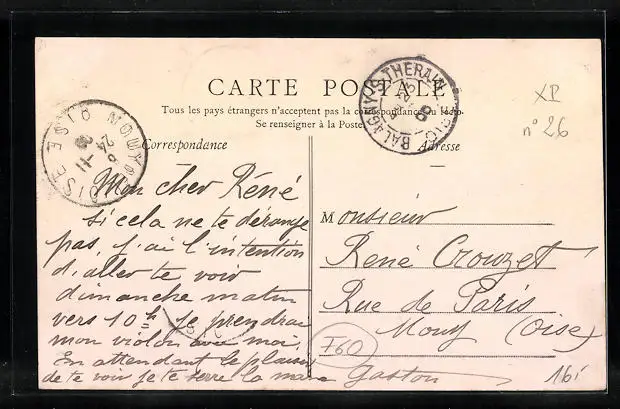 CARTE POSTALE
Tous les pays étrangers n'acceptent pas la correspondance au recto
Se renseigner à la Poste
Correspondance
Adresse
BALAGNY-S-THERAIN
MOUY OISE
24-11
XI
n° 26
Mon cher Réné
si cela ne te dérange
pas, j'ai l'intention
d'aller te voir
dimanche matin
vers 10h je prendrai
mon violon avec moi.
En attendant le plaisir
de te voir je te serre la main
Gaston
Monsieur
René Crouzet
Rue de Paris
Mouy (Oise)
760
16i